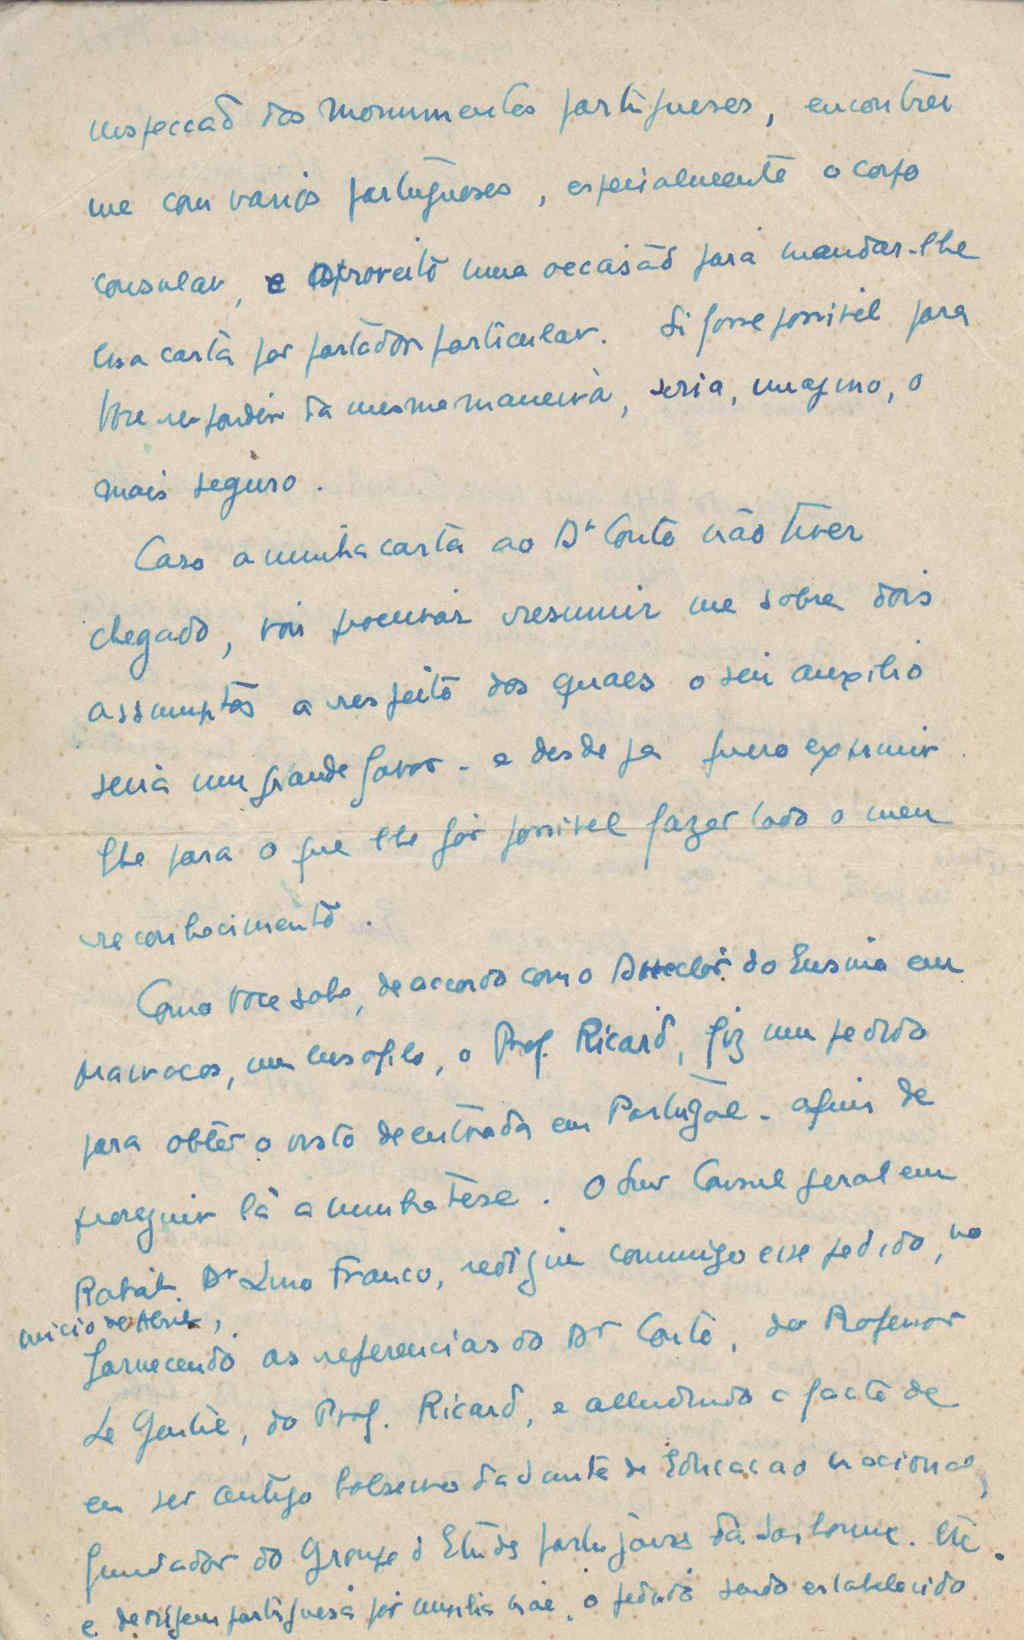 inspecção dos monumentos portugueses, encontrei
me com varios portugueses, especialmente o corpo
consular, e aproveito uma occasião para mandar-lhe
esta carta por portador particular. Si fosse possivel para
Voce responder da mesma maneira, seria, imagino, o
mais seguro.
Caso a minha carta ao Dr Couto não tiver
chegado, vou procurar resumir me sobre dois
assumptos a respeito dos quaes o seu auxilio
seria um grande favor - e desde ja quero exprimir
lhe para o que lhe fôr possivel fazer todo o meu
reconhecimento.
Como Voce sabe, de accordo com o Director do Ensino em
Marrocos, um lusofilo, o Prof. Ricard, fiz um pedido
para obter o visto de entrada em Portugal - afim de
proseguir lá a minha tese. O Snr Consul geral em
Rabat Dr Lino Franco, redigiu commigo esse pedido, no
inicio de Abril,
fornecendo as referencias do Dr Couto, do Professor
Le Gentil, do Prof. Ricard, e alludindo o facto de
eu ser antigo bolseiro da Junta de Educacao nacional,
fundador do Groupe d'Etudes portugaises da Sorbonne. etc.
e de origem portuguesa por minha mãe, o pedido sendo establecido